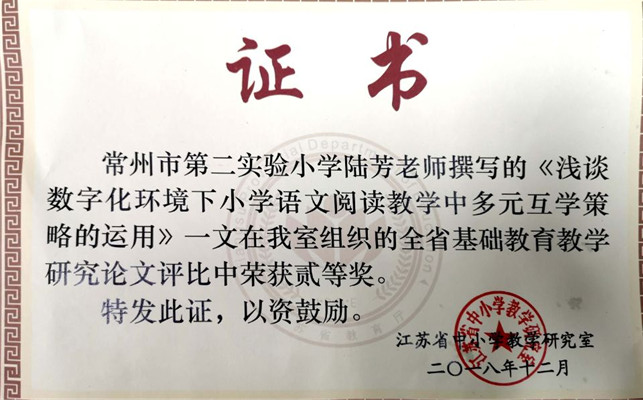 证书
常州市第二实验小学陆芳老师撰写的《浅谈
数字化环境下小学语文阅读教学中多元互学策
略的运用》一文在我室组织的全省基础教育教学
研究论文评比中荣获贰等奖。
特发此证，以资鼓励。
江苏省中小学教学研究室
二〇一八年十二月
江苏省中小学教学研究室